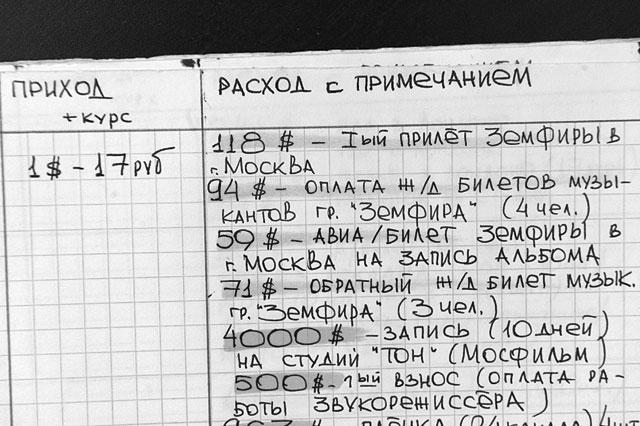 ПРИХОД
+ КУРС
1$ - 17 руб
РАСХОД с ПРИМЕЧАНИЕМ
118 $ - Iый ПРИЛЁТ ЗЕМФИРЫ В
г. МОСКВА
94 $ - ОПЛАТА Ж/Д БИЛЕТОВ МУЗЫ-
КАНТОВ ГР. "ЗЕМФИРА" (4 ЧЕЛ.)
59 $ - АВИА/БИЛЕТ ЗЕМФИРЫ В
г. МОСКВА НА ЗАПИСЬ АЛЬБОМА
71 $ - ОБРАТНЫЙ Ж/Д БИЛЕТ МУЗЫК.
ГР. "ЗЕМФИРА" (3 ЧЕЛ.)
4000 $ - ЗАПИСЬ (10 ДНЕЙ)
НА СТУДИЙ "ТОН" (МОСФИЛЬМ)
500 $ - 1ый ВЗНОС (ОПЛАТА РА-
БОТЫ ЗВУКОРЕЖИССЁРА)